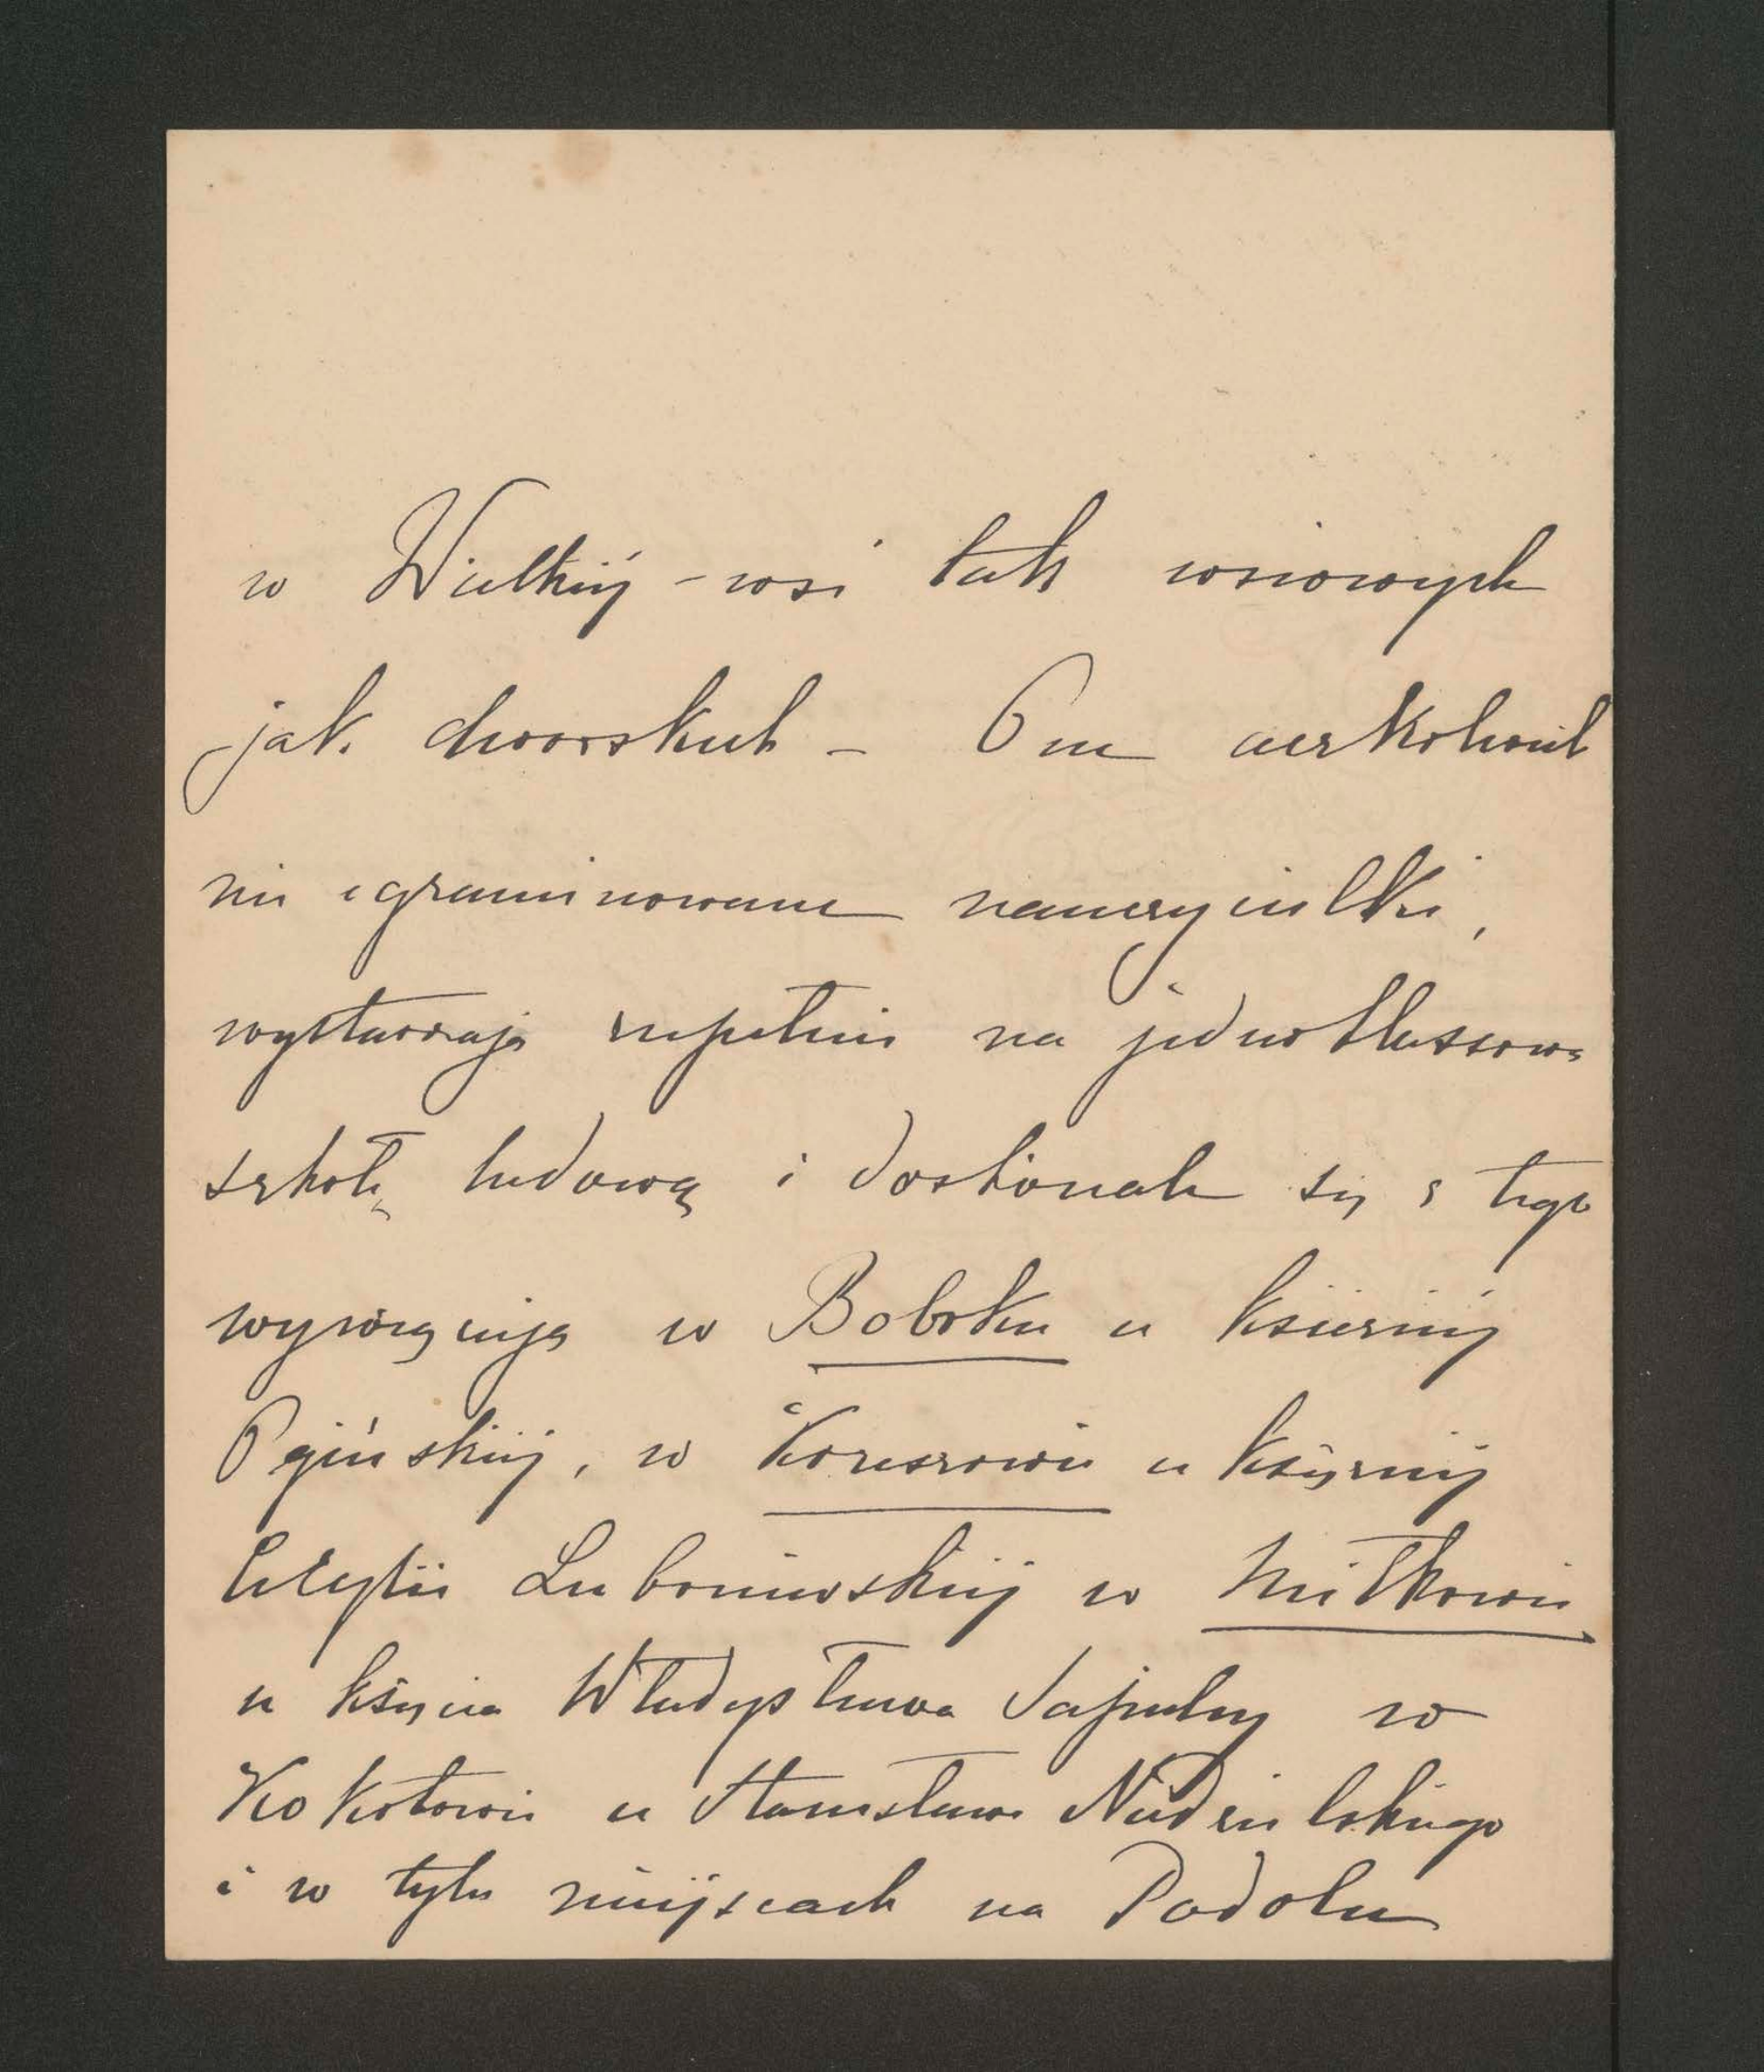 w Wielkiej-wsi tak wsiowych
jak dworskich – One aczkolwiek
nie egzaminowane nauczycielki,
wystarczają zupełnie na jednoklassową
szkołę ludową i doskonale się z tego
wywiązują w Bobrku u księżnej
Ogińskiej, w Kruszowie u księżnej
Cecylii Lubomirskiej w
u księcia Władysława Sapiehy w
Kokotowie u Stanisława Niedzielskiego
i w tylu miejscach na Podolu